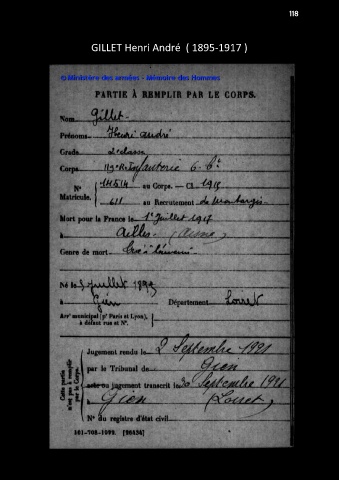 118
GILLET Henri André ( 1895-1917 )
©Ministère des armées - Mémoire des Hommes
PARTIE À REMPLIR PAR LE CORPS.
Nom Gillet
Prénoms Henri André
Grade 2e classe
Corps 113e R. Infanterie 6e Cie
N° Matricule. au Corps. — Cl. 1915
611 au Recrutement de Montargis
Mort pour la France le 1er Juillet 1917
à Ailles (Aisne)
Genre de mort Tué à l'ennemi
Né le Juillet 1895
à Gien Département Loiret
Arrt municipal (pr Paris et Lyon), à défaut rue et N°.
Cette partie n'est pas à remplir par le Corps.
Jugement rendu le 2 Septembre 1921
par le Tribunal de Gien
acte ou jugement transcrit le 30 Septembre 1921
à Gien (Loiret)
N° du registre d'état civil
101-708-1922. [26434]